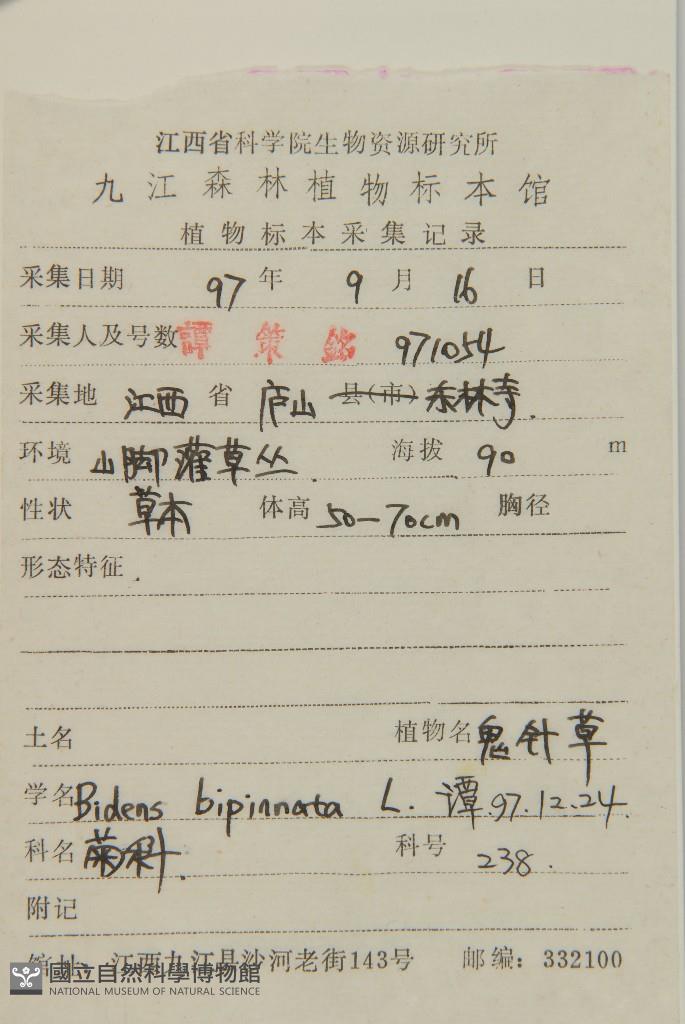 江西省科学院生物资源研究所
九江森林植物标本馆
植物标本采集记录
采集日期 97 年 9 月 16 日
采集人及号数 譚策銘 971054
采集地 江西 省 庐山 县(市) 东林寺.
环境 山脚灌草丛. 海拔 90 m
性状 草本 体高 50-70cm 胸径
形态特征.
土名 植物名 鬼针草
学名 Bidens bipinnata L. 谭.97.12.24.
科名 菊科. 科号 238.
附记
馆址: 江西九江县沙河老街143号 邮编: 332100
國立自然科學博物館
NATIONAL MUSEUM OF NATURAL SCIENCE